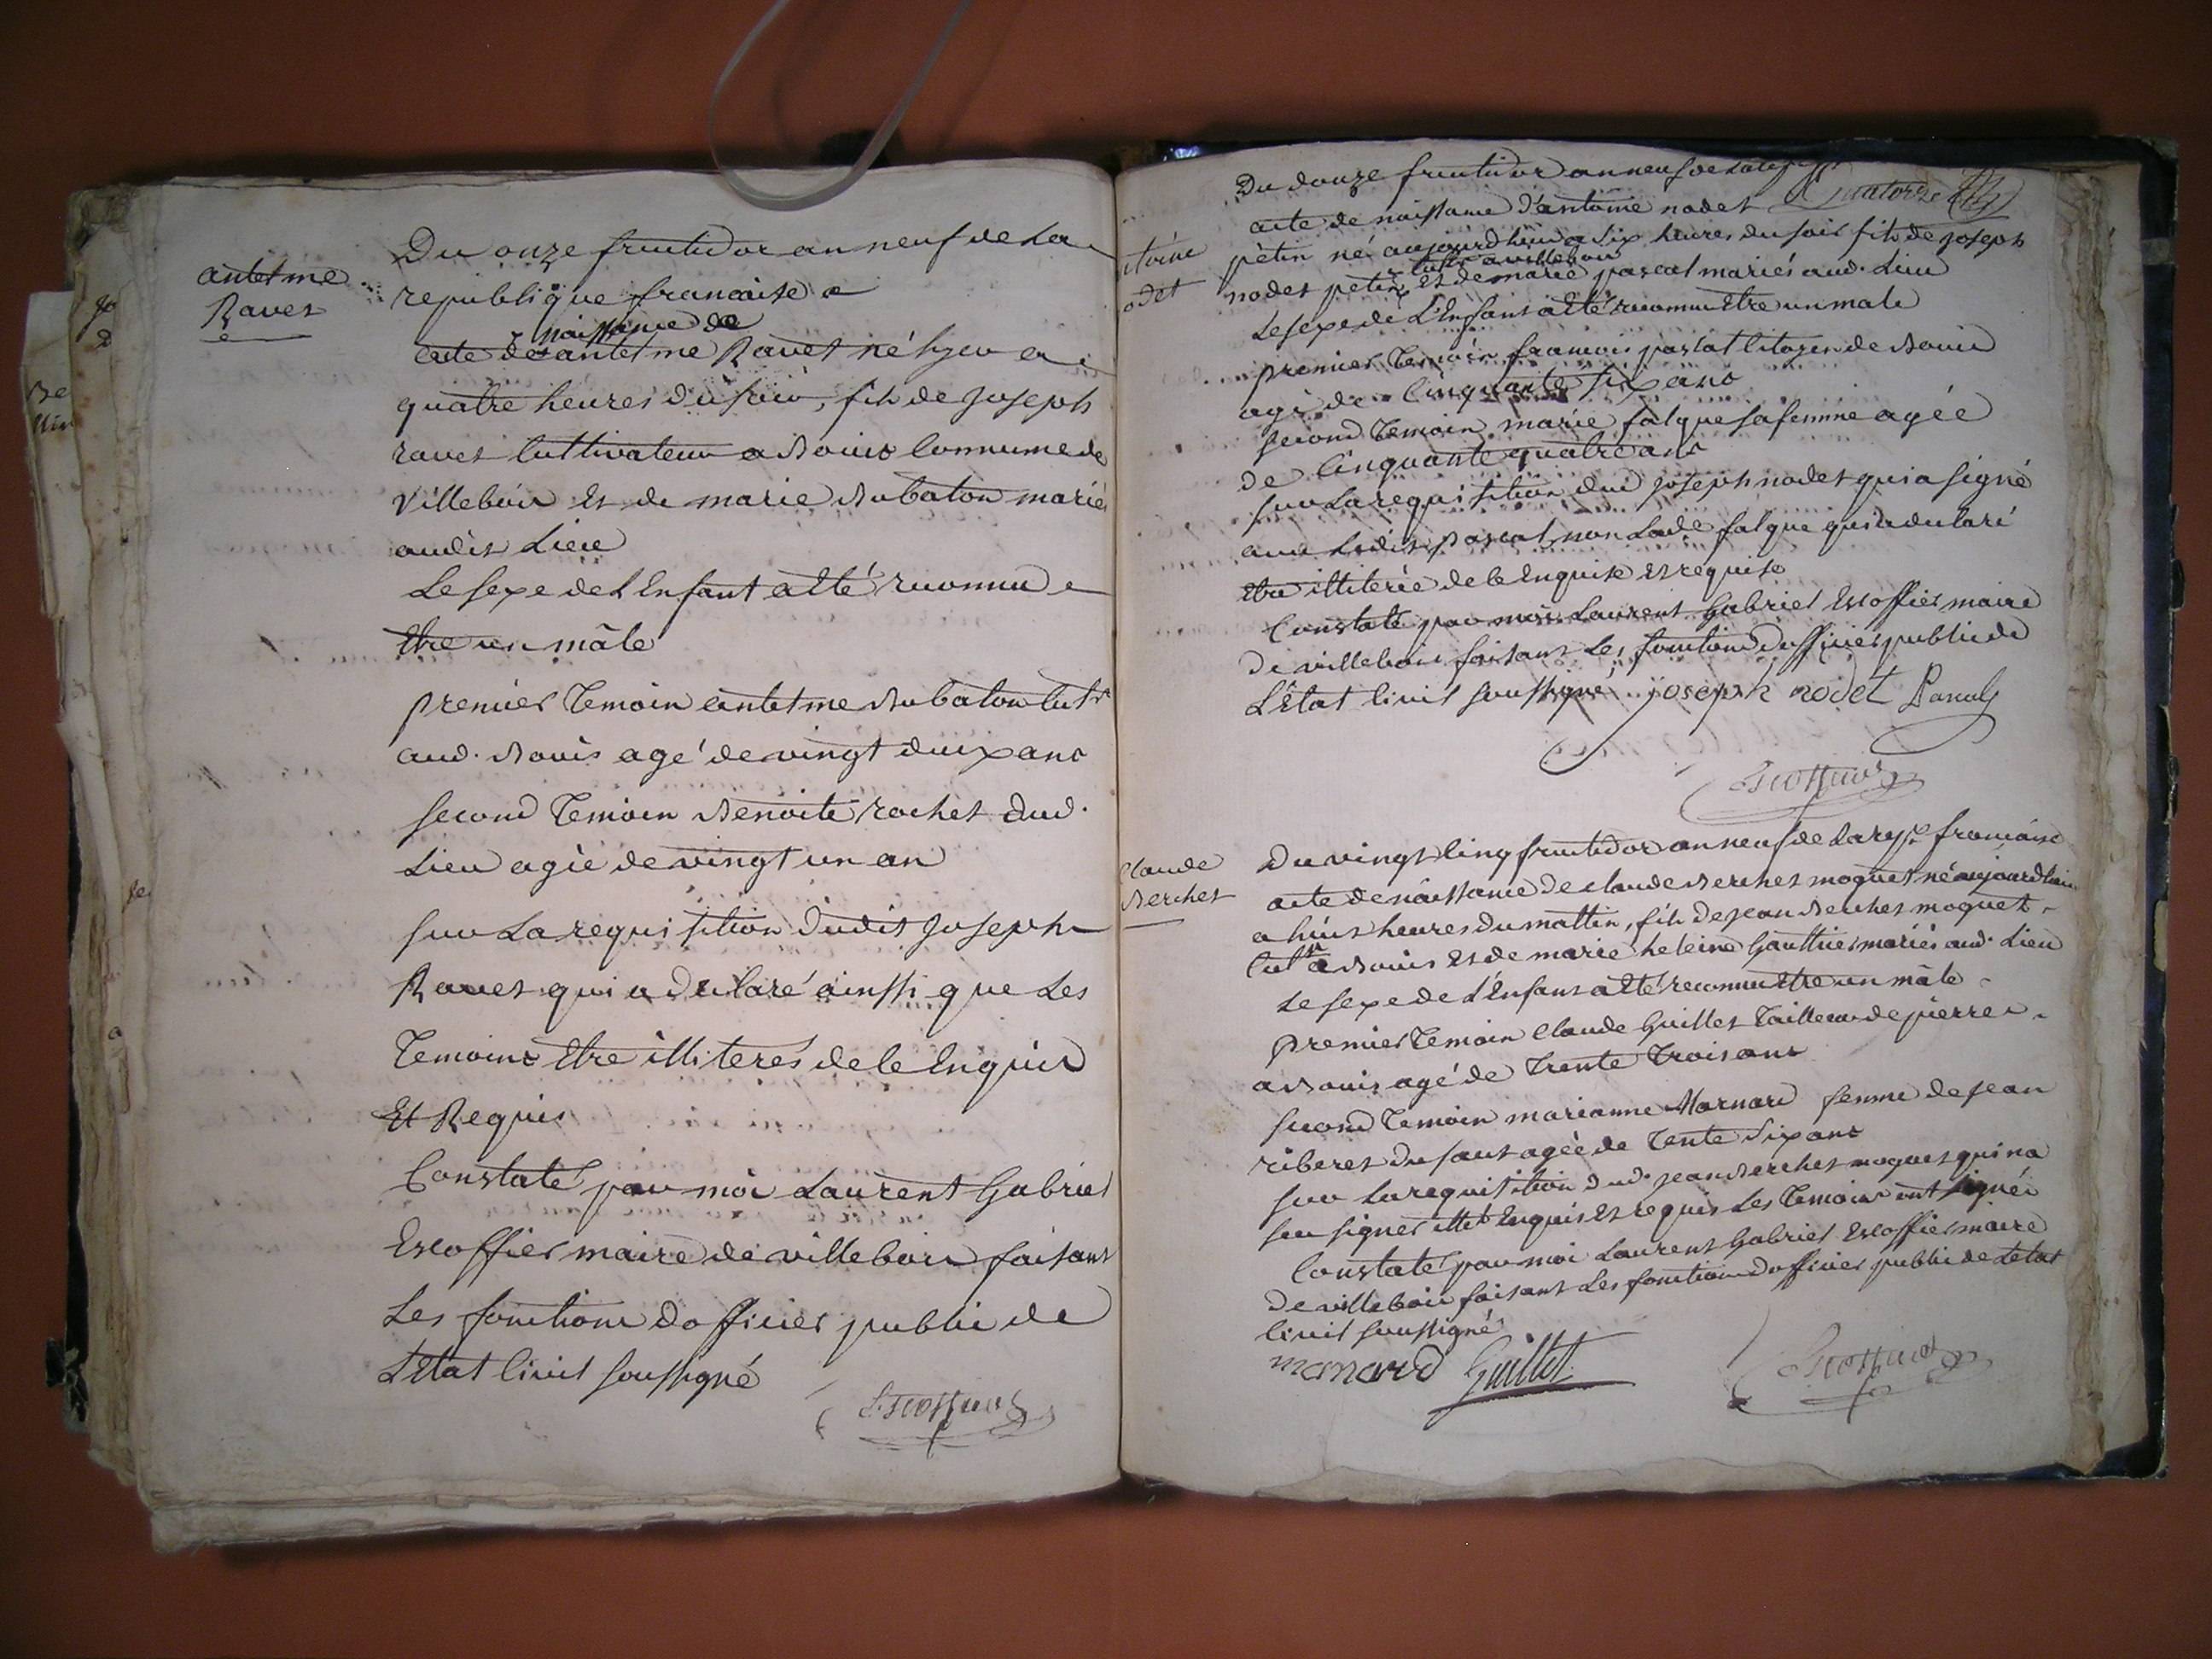 antelme
Ravet
Du onze fructidor an neuf de la
republique francaise
naissance de
acte de antelme Ravet né hyer a
quatre heures du soir, fils de joseph
ravet cultivateur a Bouis commune de
Villebois et de marie Dubaton mariés
audit Lieu
Le sexe de L'Enfant a Eté reconnu
Etre un mâle
premier Temoin antelme Dubaton cult.r
aud. Bouis agé de vingt deux ans
second Temoin Benoite rochet dud.
Lieu agée de vingt un an
sur La requisition dudit joseph
Ravet qui a declaré ainssi que Les
Temoins Etre illiterés de ce Enquis
Et Requis
Constaté par moi Laurent Gabriel
Escoffier maire de villebois faisant
Les fonctions dofficier public de
L'Etat Civil soussigné
Escoffier
Du douze fructidor an neuf de la
quatorze
acte de naissance d'antoine nodet
toine
odet
petin né aujourdhui a six heures du soir fils de joseph
cult.r a villebois
nodet petin et de marie pascal mariés aud. Lieu
Le sexe de L'Enfant a Eté reconnu Etre un male
premier Temoin francois pascal Citoyen de Bouis
agé de Cinquante six ans
second Temoin marie falque sa femme agée
de Cinquante quatre ans
sur La requisition dud joseph nodet qui a signé
avec Ledit pascal non Lad. falque qui a declaré
Etre illiterée de ce Enquise et requise
Constaté par moi Laurent Gabriel Escoffier maire
de villebois faisant Les fonctions dofficier public de
L'Etat Civil soussigné joseph nodet Pascal
Escoffier
Claude
Berchet
Du vingt cinq fructidor an neuf de La rep.e francaise
acte de naissance de claude Berchet moquet né aujourdhui
a huit heures du mattin, fils de jean Berchet moquet
cult.r a Bouis et de marie heleine Gauttier mariés aud. Lieu
Le sexe de L'Enfant a Eté reconnu Etre un mâle
premier Temoin Claude Guillet Tailleur de pierre
a Bouis agé de Trente Trois ans
second Temoin marianne Marnard femme de jean
riberet du saut agée de Tente six ans
sur La requisition dud. jean Berchet moquet qui na
seu signer illet. Enquis et requis Les Temoins ont signés
Constaté par moi Laurent Gabriel Escoffier maire
de villebois faisant Les fonctions dofficier public de Letat
Civil soussigné
manard Guillet
Escoffier